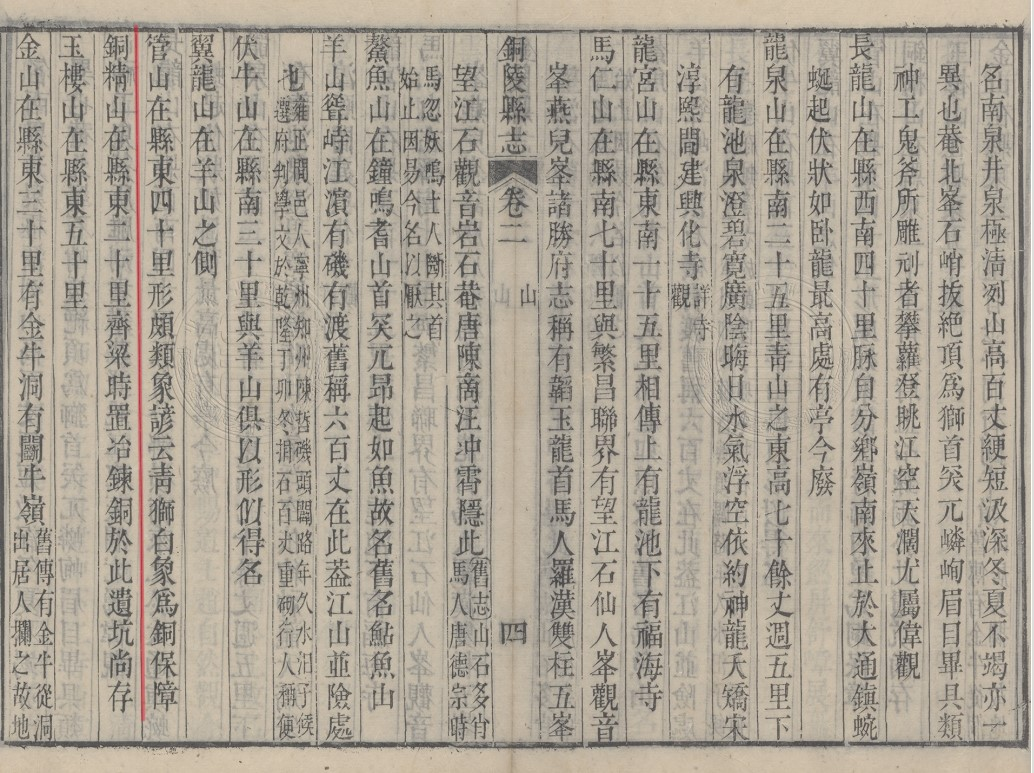 名南泉井泉極淸冽山高百丈綆短汲深冬夏不竭亦一
異也菴北峯石峭拔絶頂爲獅首突元嶙峋眉目畢具類
神工鬼斧所雕刓者攀蘿登眺江空天濶尤屬偉觀
長龍山在縣西南四十里脉自分鄉嶺南來止於大通鎮蜿
蜒起伏狀如卧龍最高處有亭今廢
龍泉山在縣南二十五里靑山之東高七十餘丈週五里下
有龍池泉澄碧寬廣陰晦日水氣浮空依約神龍夭矯宋
淳熙間建興化寺詳寺觀
龍宮山在縣東南一十五里相傳上有龍池下有福海寺
馬仁山在縣南七十里與繁昌聯界有望江石仙人峯觀音
峯燕兒峯諸勝府志稱有韞玉龍首馬人羅漢雙柱五峯
銅陵縣志 卷二 山 四
望江石觀音岩石菴唐陳商汪冲霄隱此舊志山石多肖馬人唐德宗時
馬忽妖鳴土人斷其首始止因易今名以厭之
鰲魚山在鐘鳴耆山首突元昂起如魚故名舊名鮎魚山
羊山聳峙江濵有磯有渡舊稱六百丈在此葢江山並險處
也雍正間邑人寧州知州陳哲磯頭闢路年久水汨丁候選府判學文於乾隆丁卯冬捐石百丈重砌行人稱便
伏牛山在縣南三十里與羊山俱以形似得名
翼龍山在羊山之側
管山在縣東四十里形頗類象諺云靑獅白象爲銅保障
銅精山在縣東二十里齊梁時置冶鍊銅於此遺坑尚存
玉樓山在縣東五十里
金山在縣東三十里有金牛洞有闢牛嶺舊傳有金牛從洞出居人攔之故地